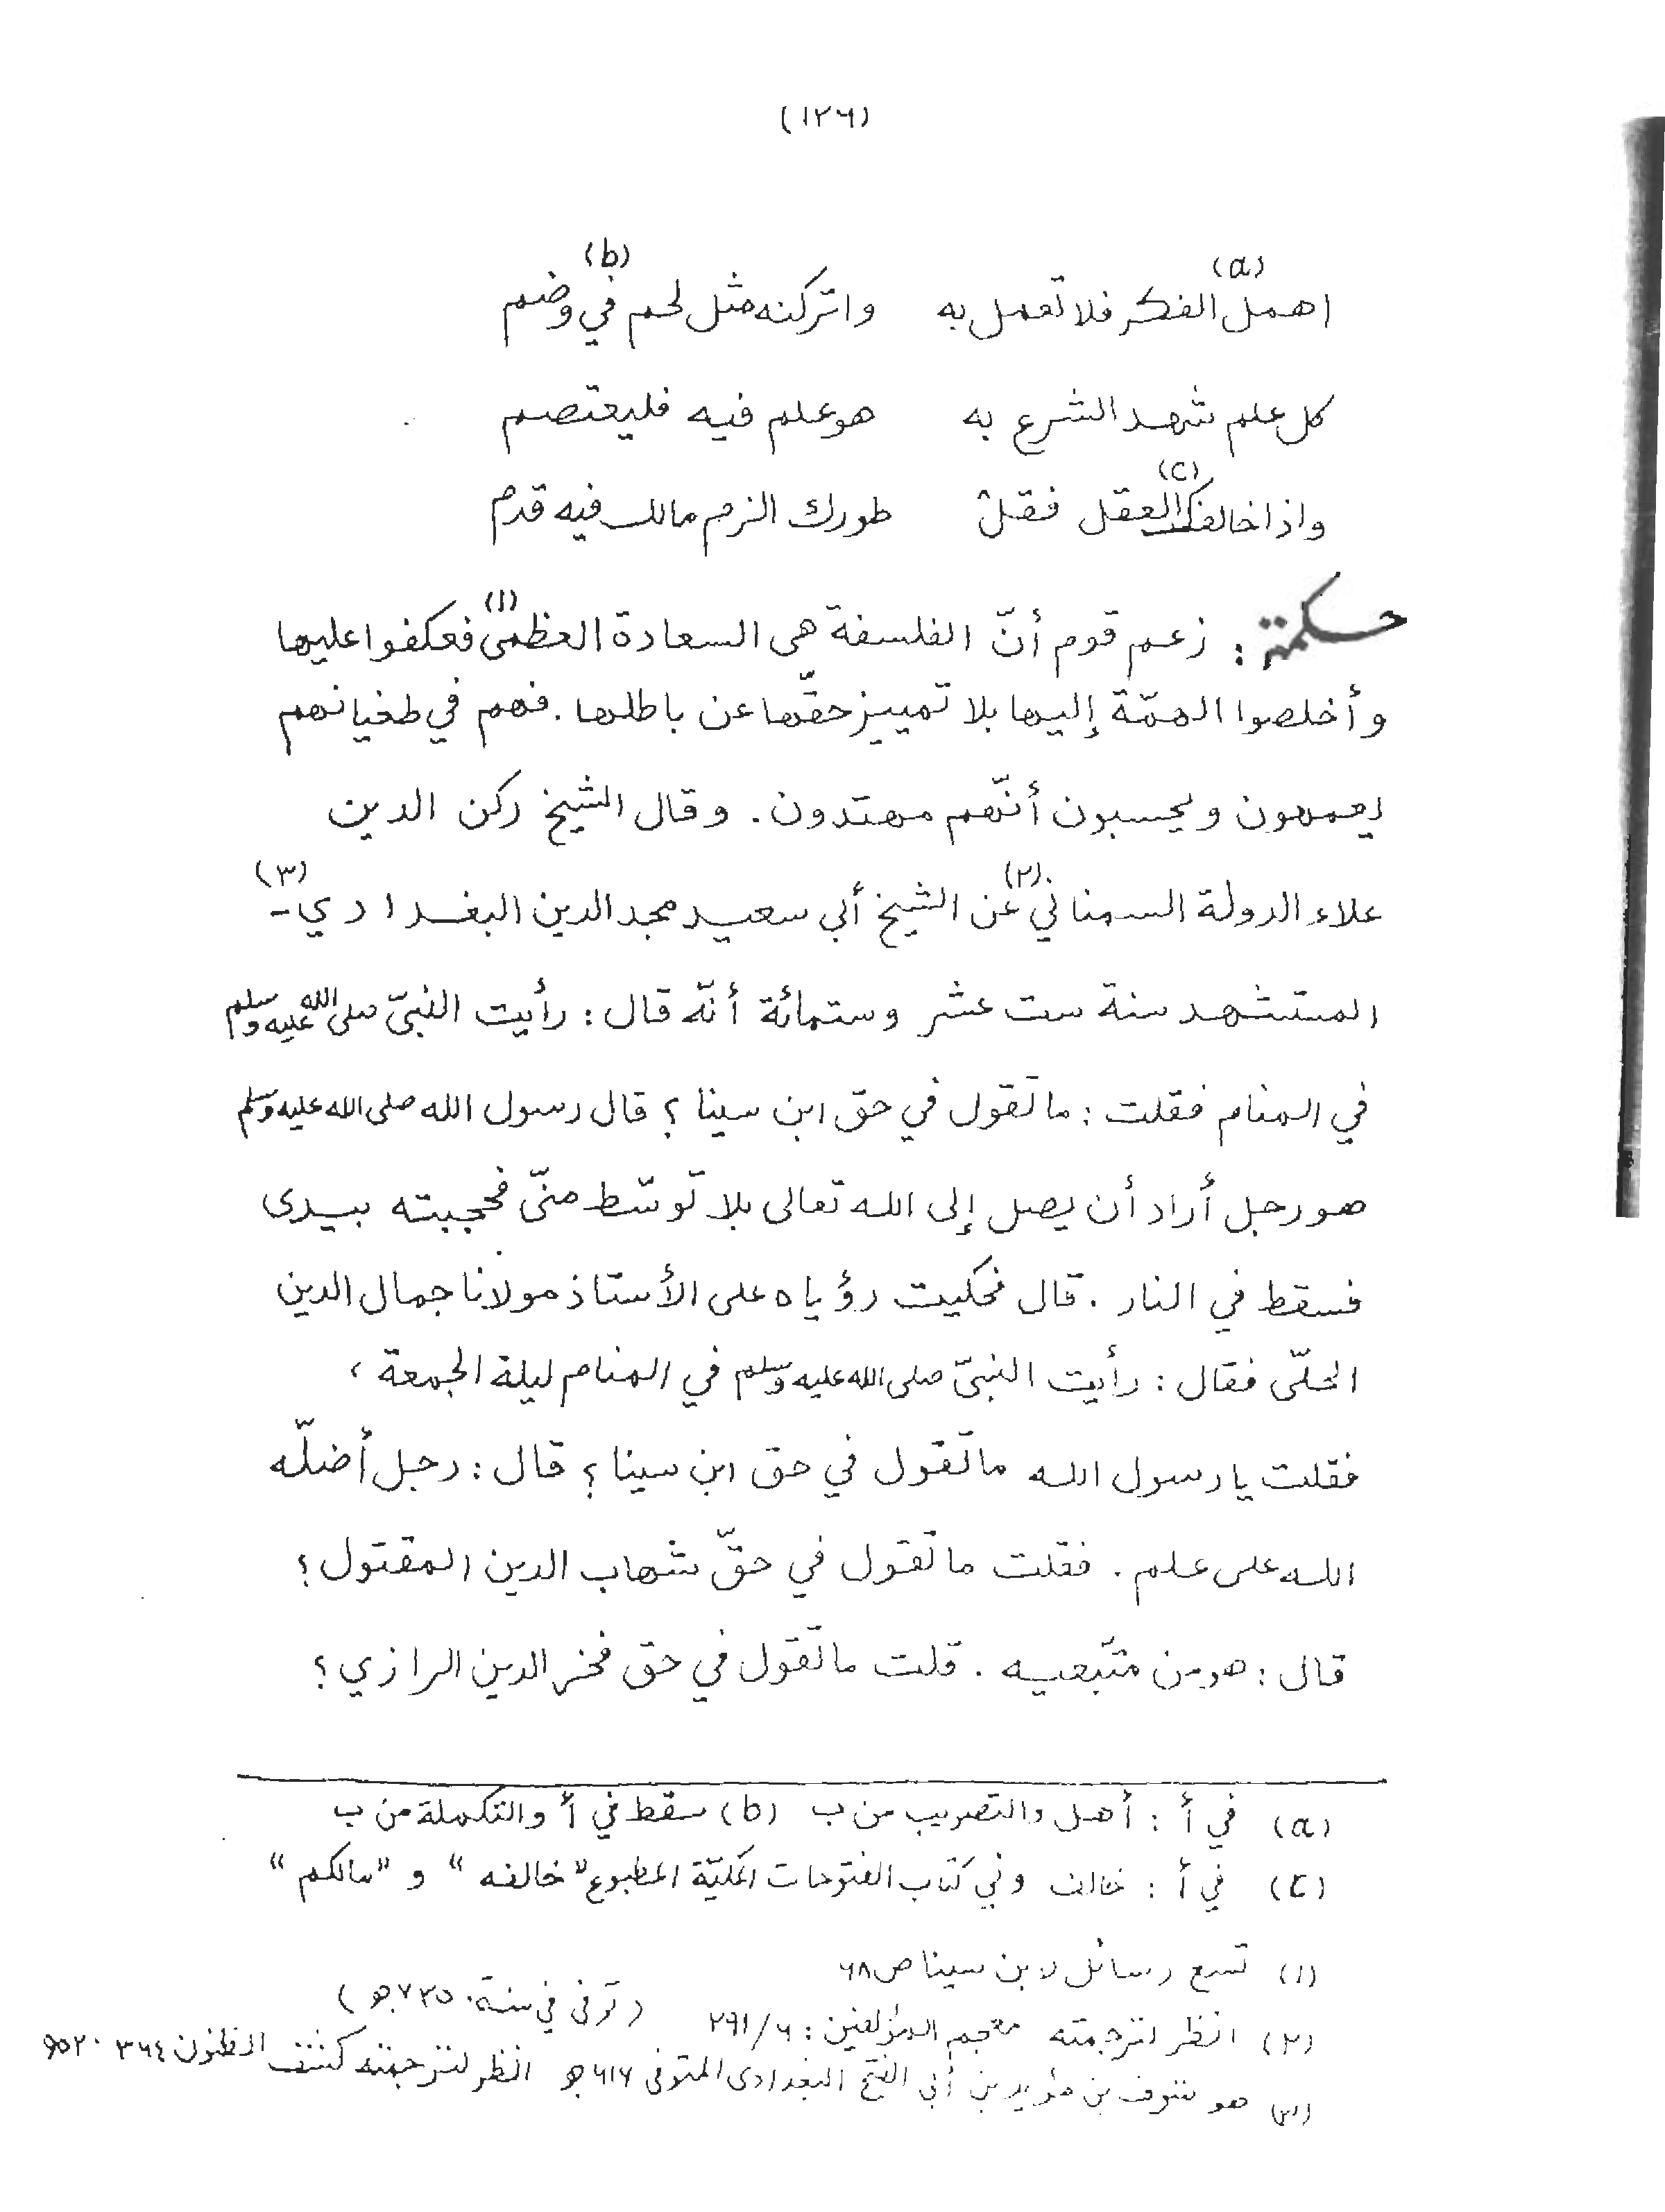 (١٢٦)
اهمل(a) الفكر فلا تعمل به    واتركنه مثل لحم في(b) وضم
كل علم شهد الشرع به    هو علم فيه فليعتصم
واذا خالفك(c) العقل فقل    طورك الزم مالك فيه قدم
حكمة : زعم قوم أنّ الفلسفة هى السعادة العظمى(١) فعكفوا عليها
وأخلصوا الهمّة إليها بلا تمييز حقّها عن باطلها . فهم في طغيانهم
يعمهون ويحسبون أنّهم مهتدون . وقال الشيخ ركن الدين
علاء الدولة السمناني(٢) عن الشيخ أبي سعيد مجد الدين البغدادي(٣) -
المستشهد سنة ست عشر وستمائة أنّه قال : رأيت النبىّ صلى الله عليه وسلم
في المنام فقلت : ما تقول في حق ابن سينا ؟ قال رسول الله صلى الله عليه وسلم
هو رجل أراد أن يصل إلى الله تعالى بلا توسّط منىّ فحجبته بيدى
فسقط في النار . قال فحكيت رؤياه على الأستاذ مولانا جمال الدين
الحلّى فقال : رأيت النبىّ صلى الله عليه وسلم في المنام ليلة الجمعة ،
فقلت يا رسول الله ما تقول في حق ابن سينا ؟ قال : رجل أضلّه
الله على علم . فقلت ما تقول في حقّ شهاب الدين المقتول ؟
قال : هو من متّبعيه . قلت ما تقول في حق فخر الدين الرازي ؟
(a) في أ : أهل والتصويب من ب (b) سقط في أ والتكملة من ب
(c) في أ : خالف وفي كتاب الفتوحات المكيّة المطبوع "خالفه" و "مالكم"
(١) تسع رسائل لابن سينا ص ٦٨
(٢) انظر لترجمته معجم المؤلفين : ٢٩١/٦ (توفى في سنة ٧٣٥ هـ)
(٣) هو شرف بن مؤيد بن أبي الفتح البغدادى المتوفى ٦١٦ هـ انظر لترجمته كشف الظنون ٣٦٤